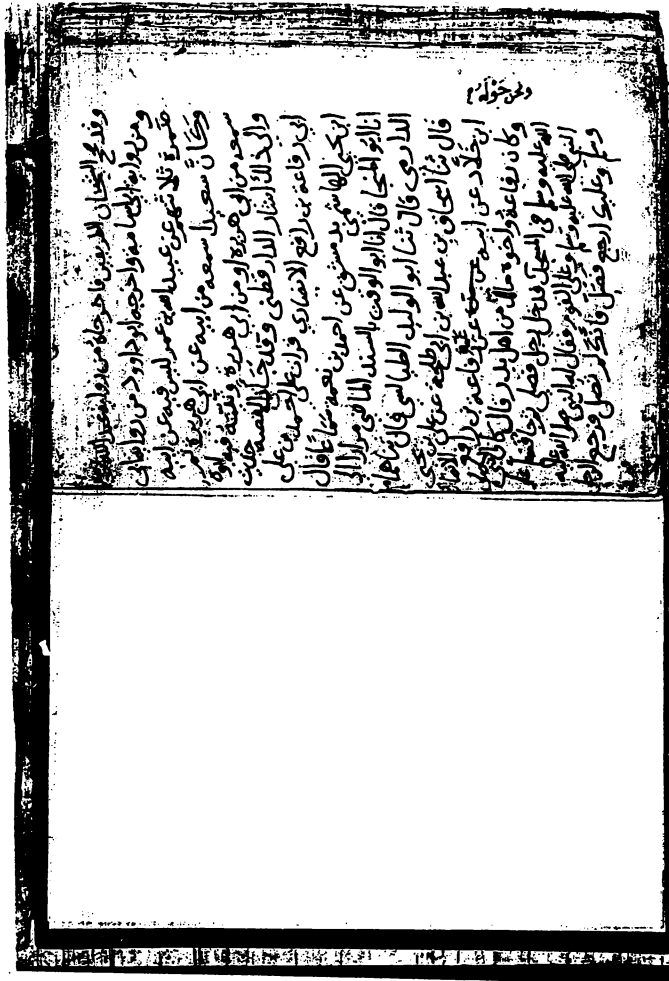 وقد صحح الشيخان الطريقين فاخرجاه من رواية
ومن رواية ابي اسامة واخرجه ابو داوود من رواية ابي
ضمرة ثلاثتهم عن عبيد الله بن عمر ليس فيه عن ابيه
وكان سعيدا سمعه من ابيه عن ابي هريرة ثم
سمعه من ابي هريرة او من ابي هريرة وثبته فيه ابوه
والى ذلك اشار الدارقطني وقد جا في القصة حديث
ابي رفاعة بن رافع الانصاري قرات على احمد بن علي
ابن يحيى الهاشمي بدمشق عن احمد بن نعمة سماعا قال
انا ابو المنجا قال انا ابو الوقت بالسند الماضي مرارا الى
الدارمي قال ثنا ابو الوليد الطيالسي قال ثنا همام
قال ثنا اسحاق بن عبد الله بن ابي طلحة عن علي بن يحيى
ابن خلاد عن ابيه عن عمه رفاعة بن رافع
وكان رفاعة واخوه مالك من اهل بدر قال كان النبي
الله عليه وسلم في المسجد فدخل رجل فصلى ثم جا فسلم على
النبي صلى الله عليه وسلم وعلى القوم فقال له النبي صلى الله عليه
وسلم وعليك ارجع فصل فانك لم تصل فرجع الرجل
ونحن حوله